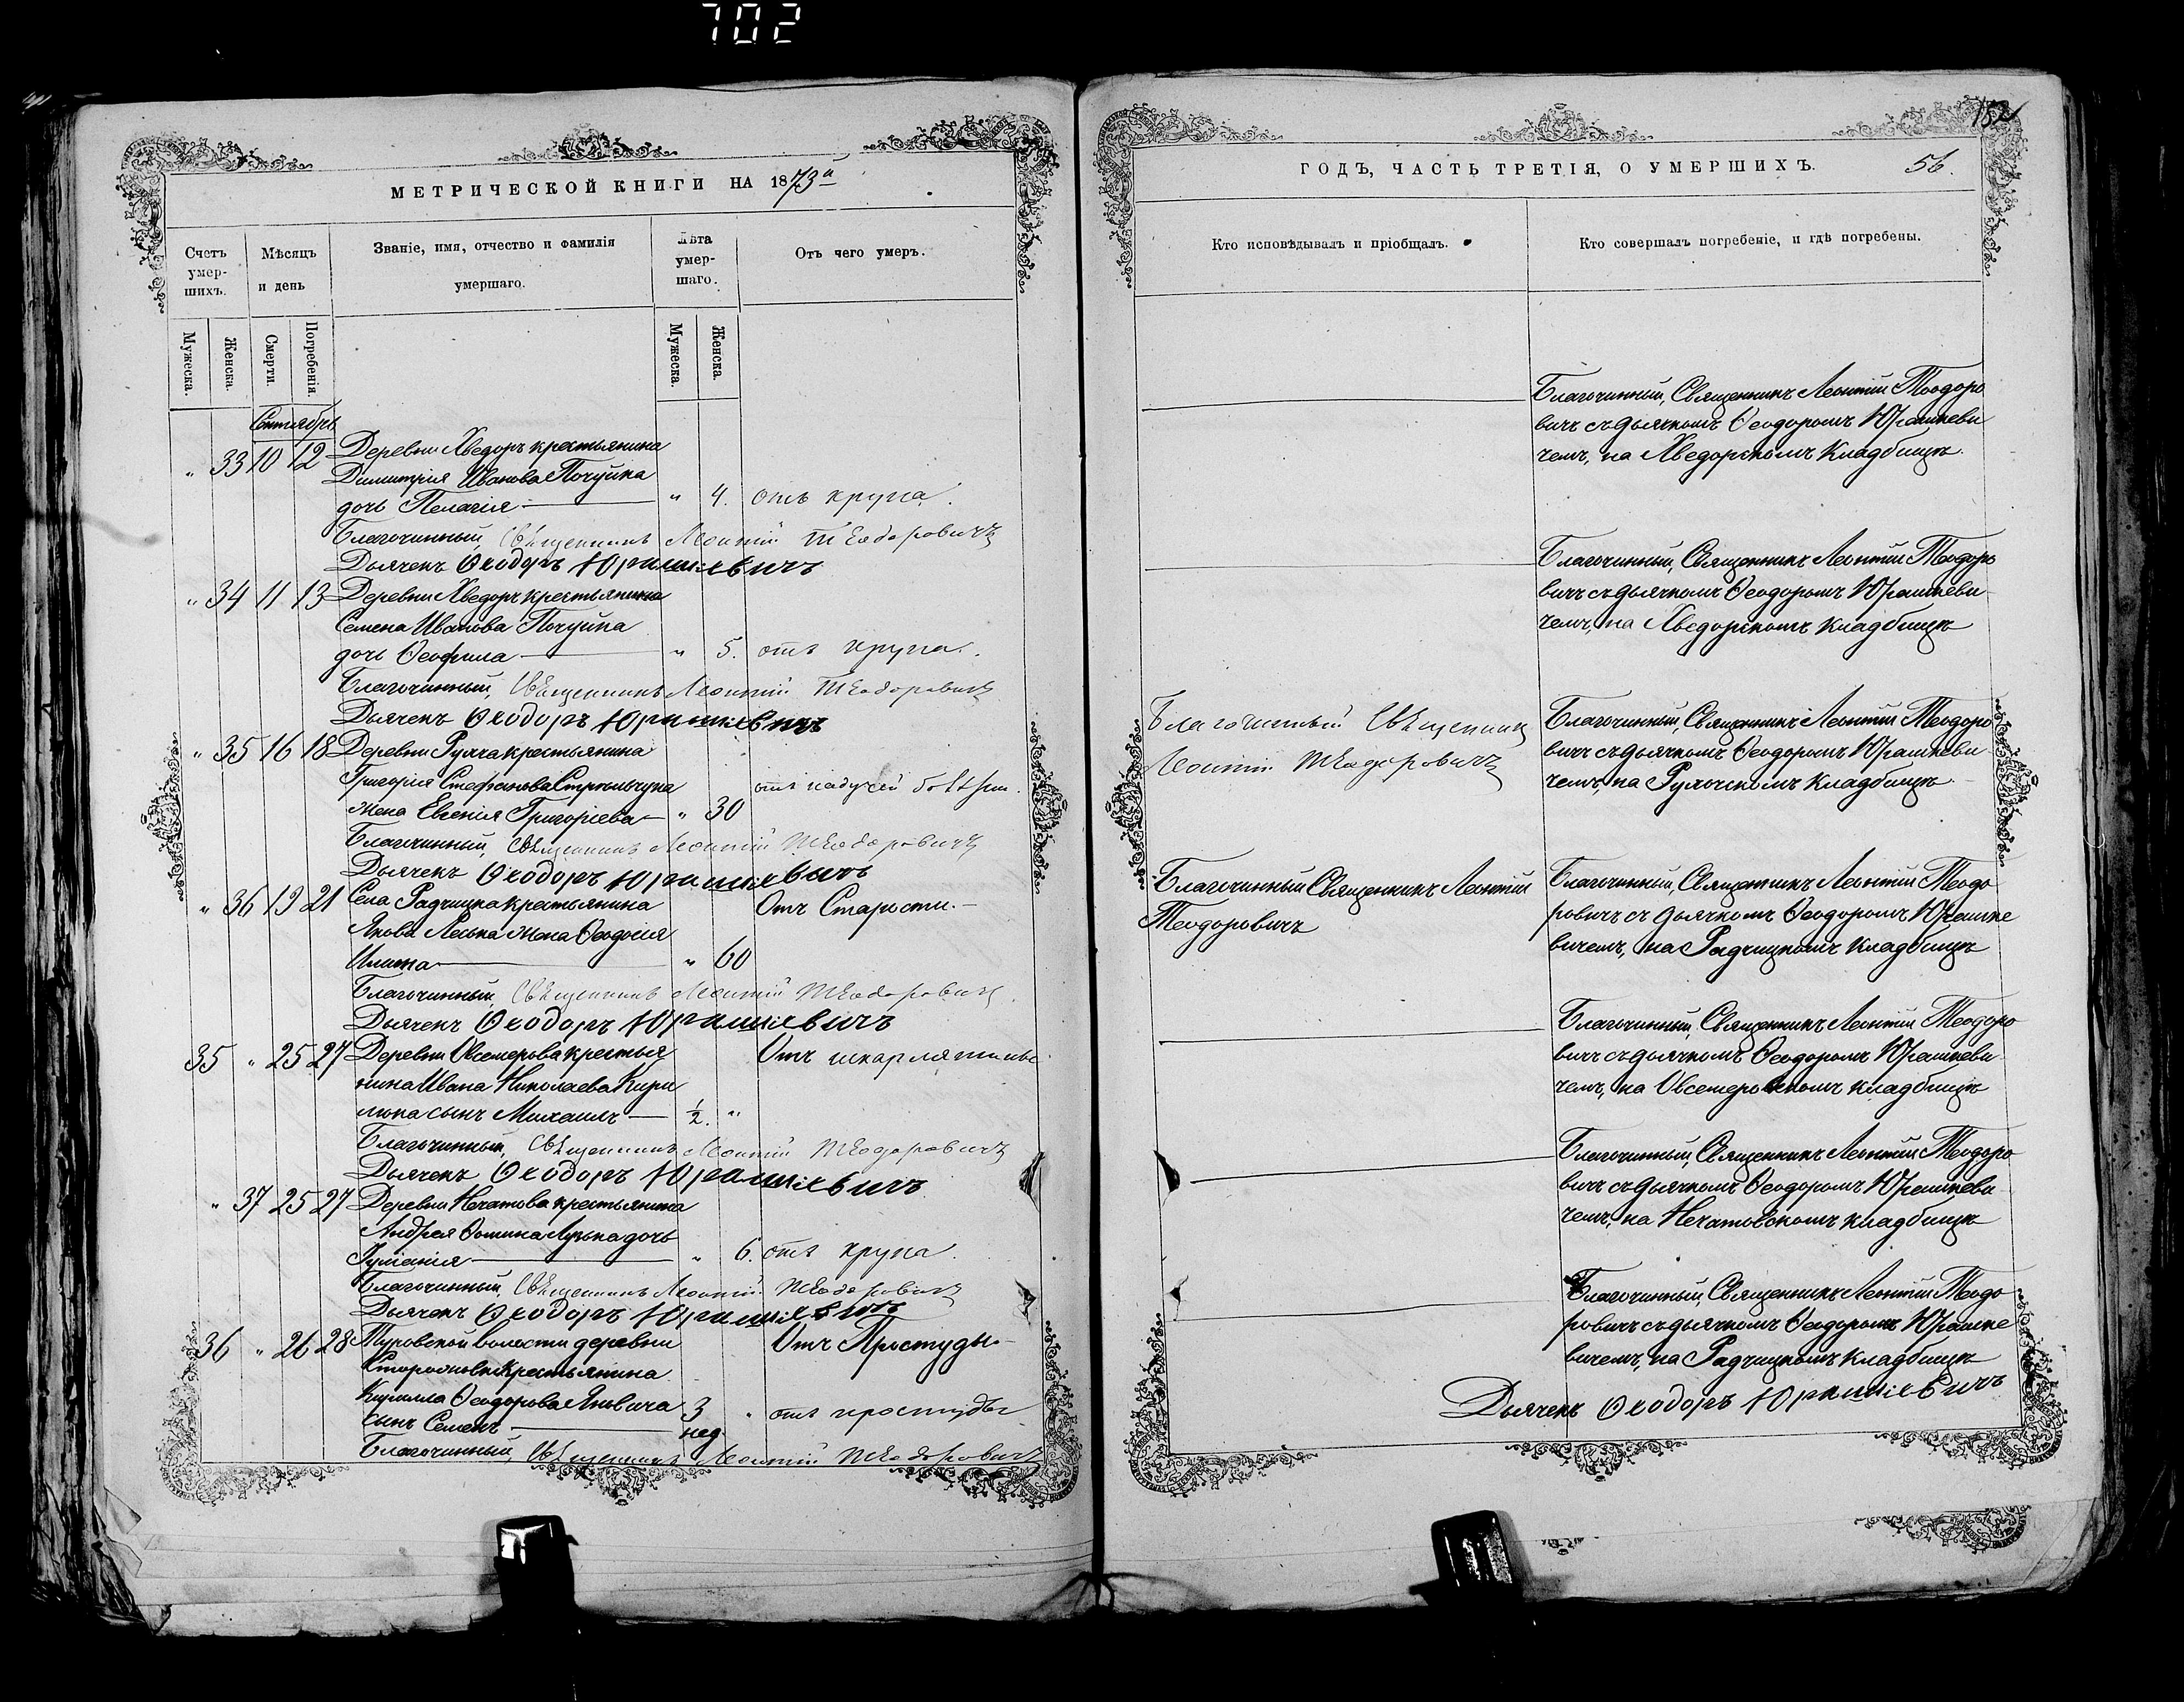 702
МЕТРИЧЕСКОЙ КНИГИ НА 1873й
Счетъ умершихъ.
Мѣсяцъ и день
Званіе, имя, отчество и фамилія умершаго.
Лѣта умершаго.
Отъ чего умеръ.
Мужеска.
Женска.
Смерти.
Погребенія.
Мужеска.
Женска.
Сентябрь
" 33 10 12 Деревни Хведоръ крестьянина
Димитрія Иванова Почуйка
дочь Пелагія " 4. отъ крупа.
Благочинный, Священникъ Леонтій Теодоровичъ
Дьячекъ Ѳеодоръ Юрашкевичъ
" 34 11 13 Деревни Хведоръ крестьянина
Семена Иванова Почуйка
дочь Ѳеофила " 5. отъ крупа.
Благочинный, Священникъ Леонтій Теодоровичъ
Дьячекъ Ѳеодоръ Юрашкевичъ
" 35 16 18 Деревни Рулча крестьянина
Григорія Стефанова
отъ падучей
жена Евгенія Григоріева " 30
Благочинный, Священникъ Леонтій Теодоровичъ
Дьячекъ Ѳеодоръ Юрашкевичъ
" 36 19 21 Села Радчицка крестьянина Отъ Старости.
Якова Леська жена Ѳеодосія
Ильина " 60
Благочинный, Священникъ Леонтій Теодоровичъ
Дьячекъ Ѳеодоръ Юрашкевичъ
35 " 25 27 Деревни Овсемерова крестья Отъ
нина Ивана Николаева Кири
люка сынъ Михаилъ 1/2. "
Благочинный, Священникъ Леонтій Теодоровичъ
Дьячекъ Ѳеодоръ Юрашкевичъ
" 37 25 27 Деревни Нечатова крестьянина
Андрея Ѳомина дочь
" 6. отъ крупа.
Благочинный, Священникъ Леонтій Теодоровичъ
Дьячекъ Ѳеодоръ Юрашкевичъ
36 " 26 28 Туровской волости деревни Отъ Простуды
крестьянина
Кирилла Ѳеодорова Яновича 3 " отъ простуды
сынъ Семенъ нед.
Благочинный, Священникъ Леонтій Теодоровичъ
ГОДЪ, ЧАСТЬ ТРЕТІЯ, О УМЕРШИХЪ.
56.
Кто исповѣдывалъ и пріобщалъ.
Кто совершалъ погребеніе, и гдѣ погребены.
Благочинный, Священникъ Леонтій Теодоро
вичъ съ дьячкомъ Ѳеодоромъ Юрашкеви
чемъ, на Хведорскомъ кладбищѣ.
Благочинный, Священникъ Леонтій Теодоро
вичъ съ дьячкомъ Ѳеодоромъ Юрашкеви
чемъ, на Хведорскомъ кладбищѣ
Благочинный Священникъ
Леонтій Теодоровичъ
Благочинный, Священникъ Леонтій Теодоро
вичъ съ дьячкомъ Ѳеодоромъ Юрашкеви
чемъ, на Рулочскомъ кладбищѣ
Благочинный Священникъ Леонтій
Теодоровичъ
Благочинный, Священникъ Леонтій Теодо
ровичъ съ дьячкомъ Ѳеодоромъ Юрашке
вичемъ, на Радчицкомъ кладбищѣ
Благочинный, Священникъ Леонтій Теодоро
вичъ съ дьячкомъ Ѳеодоромъ Юрашкеви
чемъ, на Овсемеровскомъ кладбищѣ
Благочинный, Священникъ Леонтій Теодоро
вичъ съ дьячкомъ Ѳеодоромъ Юрашкеви
чемъ, на Нечатовскомъ кладбищѣ
Благочинный, Священникъ Леонтій Теодо
ровичъ съ дьячкомъ Ѳеодоромъ Юрашке
вичемъ, на Радчицкомъ кладбищѣ
Дьячекъ Ѳеодоръ Юрашкевичъ